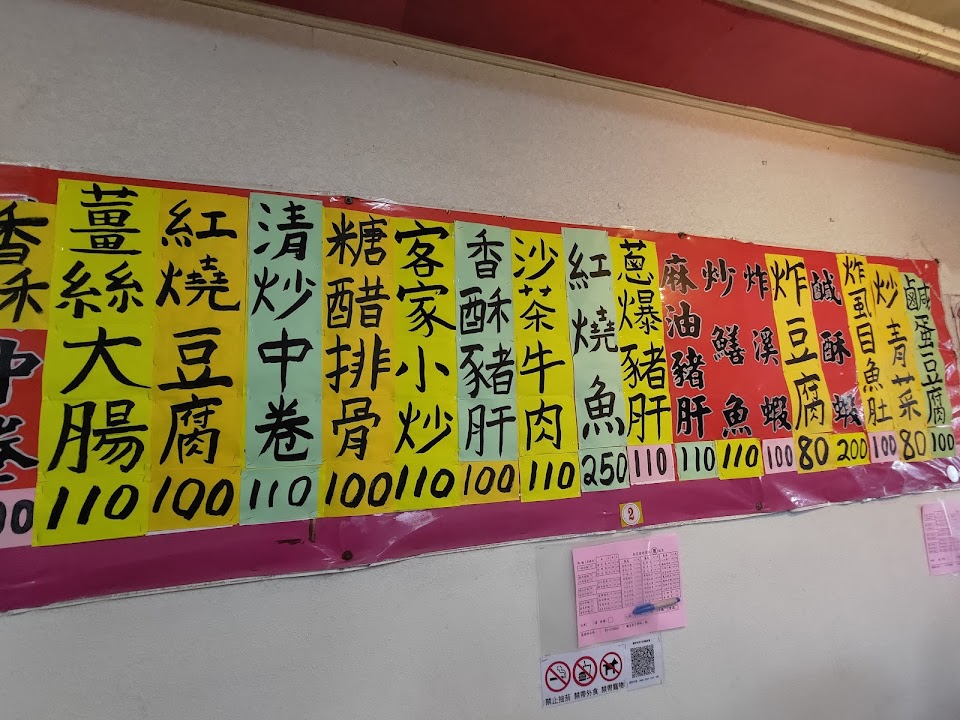 香酥中卷 00
薑絲大腸 110
紅燒豆腐 100
清炒中卷 110
糖醋排骨 100
客家小炒 110
香酥豬肝 100
沙茶牛肉 110
紅燒魚 250
蔥爆豬肝 110
麻油豬肝 110
炒鱔魚 110
炸溪蝦 100
炸豆腐 80
鹹酥蝦 200
炸虱目魚肚 100
炒青菜 80
鹹蛋豆腐 100
2
禁止抽菸 禁帶外食 禁帶寵物